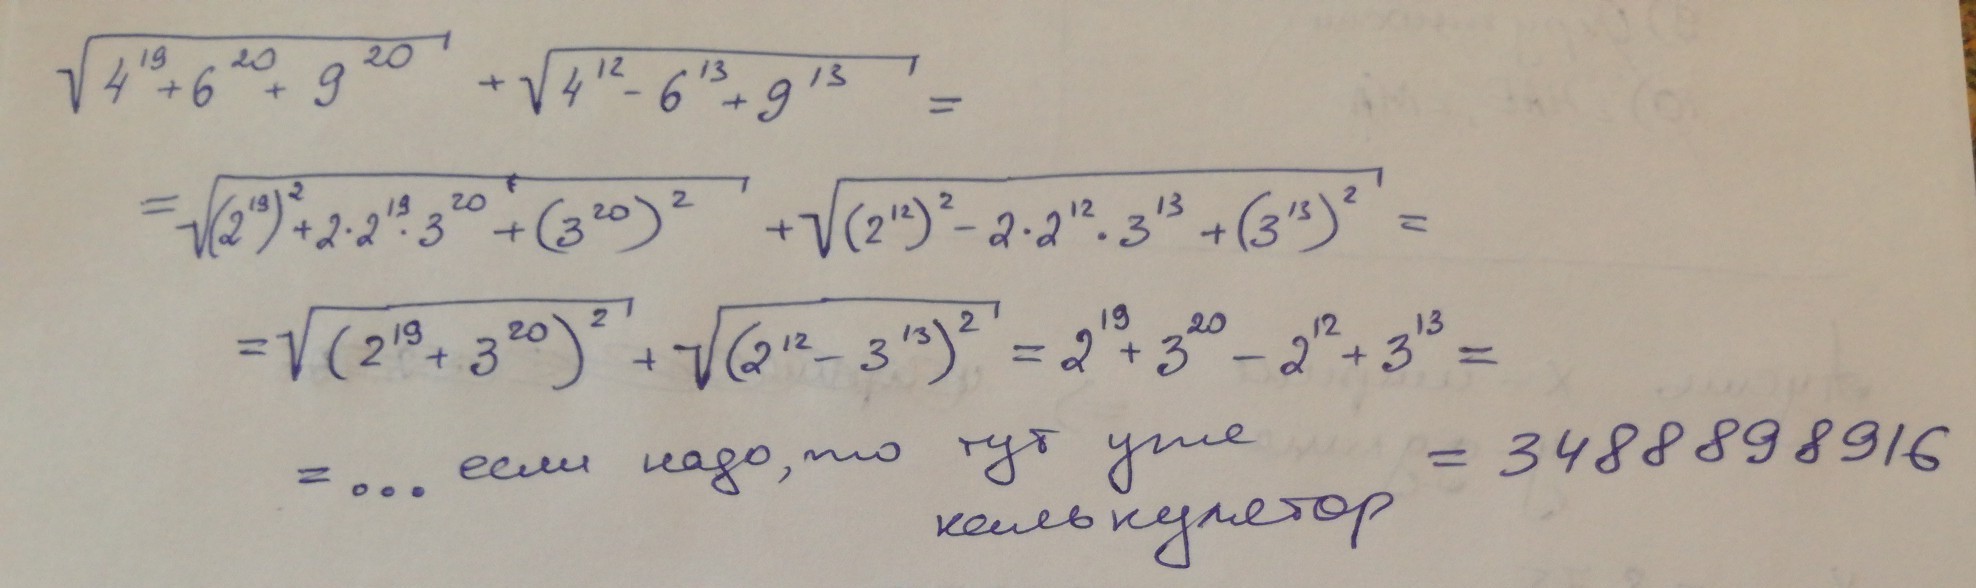 √(4¹⁹ + 6²⁰ + 9²⁰) + √(4¹² - 6¹³ + 9¹³) =
= √((2¹⁹)² + 2·2¹⁹·3²⁰ + (3²⁰)²) + √((2¹²)² - 2·2¹²·3¹³ + (3¹³)²) =
= √((2¹⁹ + 3²⁰)²) + √((2¹² - 3¹³)²) = 2¹⁹ + 3²⁰ - 2¹² + 3¹³ =
= ... если надо, то тут уже = 3488898916
калькулятор